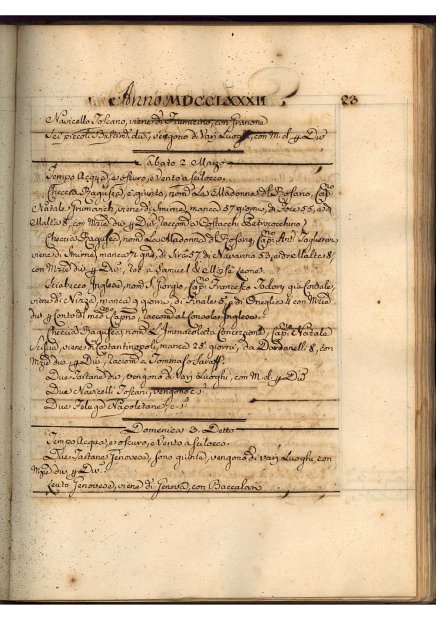 Anno MDCCLXXXII 23
Navicello Toscano, viene di Fiumicino, con
Sei piccoli Bastim.ti div.i vengono di Varj Luoghi, con M. d. p Div
Sabato 2 Marzo
Tempo Acqua, e oscuro, e Vento a scilocco.
Checcia Ragusea, è giunta, nom.a La Madonna del Rosario, Cap.o
Natale viene di Smirne, manca 57 giorni, di Scio 55, e di
Malta 8, con Mrzie div. p Div. raccom.a a Costacchi Petrococchino
Checcia Ragusea, nom.a La Madonna del Rosario, Cap.o Ant.o
viene di Smirne, manca giorni, di 57 di Navarino 53, e di Malta 8
con Mrzie div. p Div. a Samuel di Moisè Leone.
Sciabecco Inglese, nom.o S. Giorgio, Cap.o Francesco
viene di Nizza, manca 9 giorni, di Finale 5, di Oneglia 4 con Mrzie
div. p Conto di med.o Cap.no raccom.a al Console Inglese.
Checcia Ragusea, nom.a L'Immacolata Concezione, Cap.o Natale
viene di Costantinopoli, manca 25 giorni, da Dardanelli 8, con
Mrzie div. p Div. raccom.a a Tommaso
Due Tartane div. vengono di Varj Luoghi, con M. d. p Div
Due Navicelli Toscani, vengono c. s.
Due Feluga Napoletane, c. s.
Domenica 3. Detto
Tempo Acqua, e oscuro, e Vento a scilocco.
Due Tartane Genovesi, sono giunte, vengono di varj Luoghi, con
Mrzie div. p Div.
Leuto Genovese, viene di Genova, con Baccalari